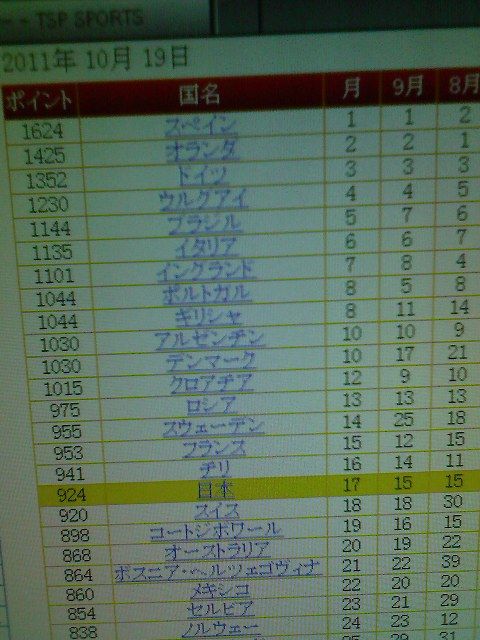 ー - TSP SPORTS
2011年 10月 19日
ポイント 国名 月 9月 8月
1624 スペイン 1 1 2
1425 オランダ 2 2 1
1352 ドイツ 3 3 3
1230 ウルグアイ 4 4 5
1144 ブラジル 5 7 6
1135 イタリア 6 6 7
1101 イングランド 7 8 4
1044 ポルトガル 8 5 8
1044 ギリシャ 8 11 14
1030 アルゼンチン 10 10 9
1030 デンマーク 10 17 21
1015 クロアチア 12 9 10
975 ロシア 13 13 13
955 スウェーデン 14 25 18
953 フランス 15 12 15
941 チリ 16 14 11
924 日本 17 15 15
920 スイス 18 18 30
898 コートジボワール 19 16 15
868 オーストラリア 20 19 22
864 ボスニア・ヘルツェゴヴィナ 21 22 39
860 メキシコ 22 20 20
854 セルビア 23 21 29
838 ノルウェー 24 23 12
25 31